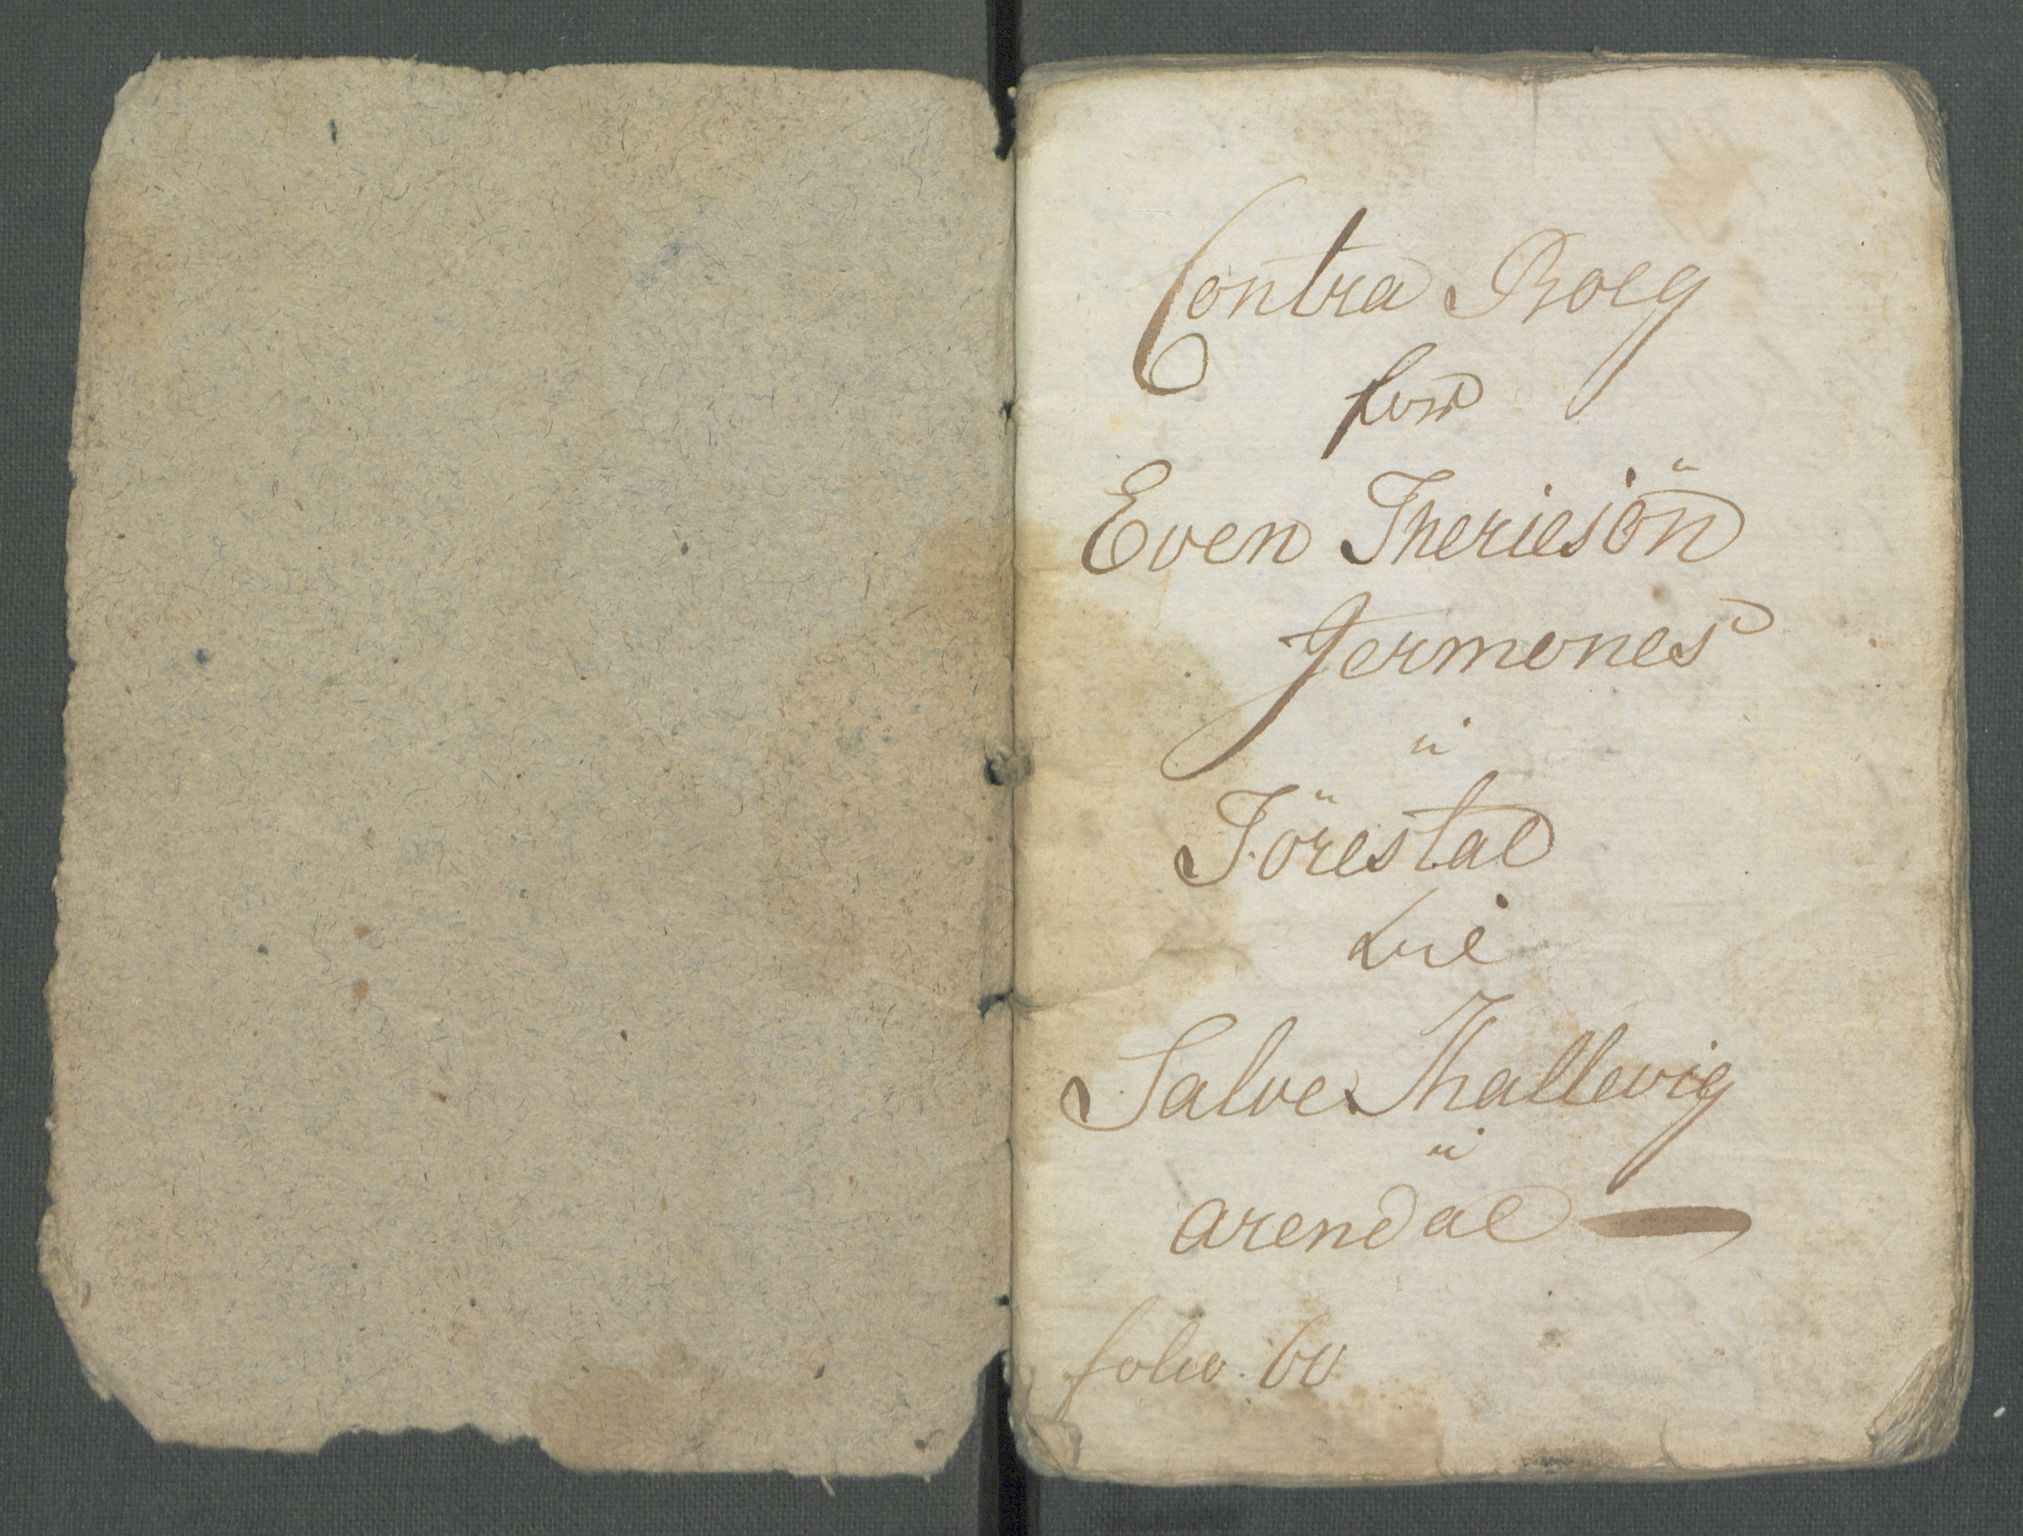 Contra Boeg
for
Even Theriesön
Jermones
ii
Förestal
bie
Salve Thallevig
ii
arendal
folio. 60